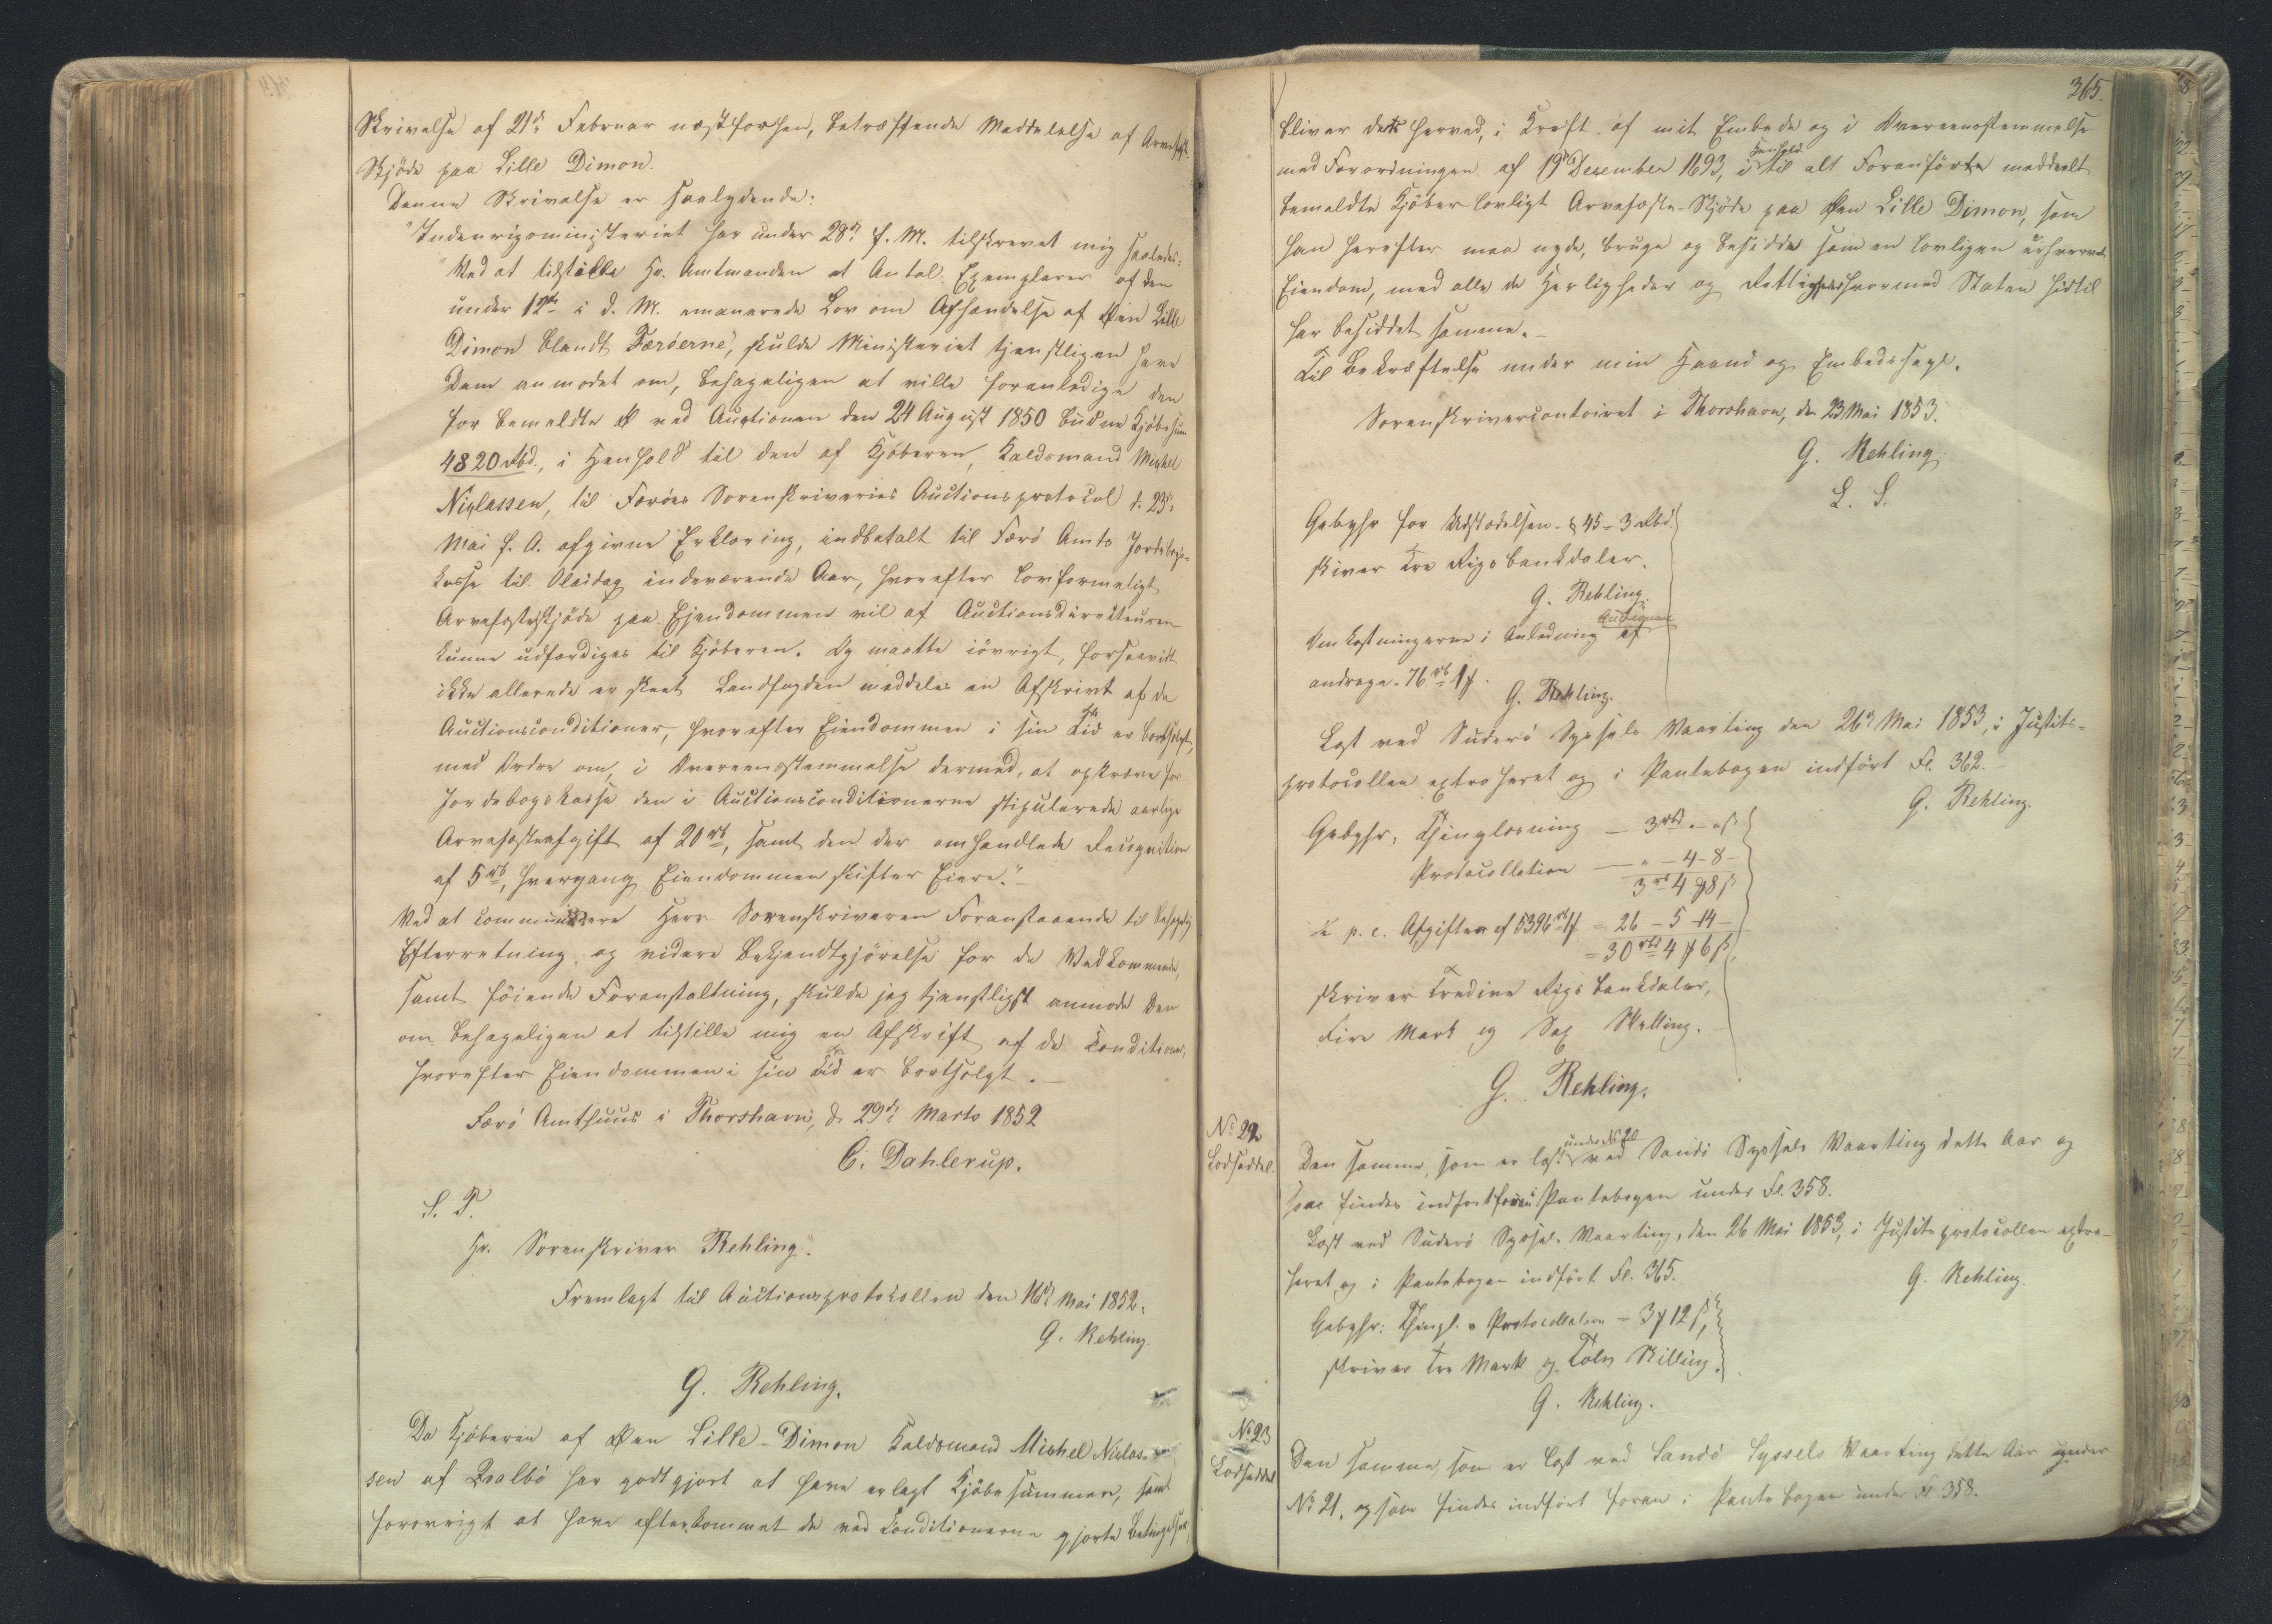 Skrivelse af 21de Februar næstforhen, betræffende Meddelelse af Arvefæste
Skjöde paa Lille Dimon.
Denne Skrivelse er saalydende:
"Indenrigsministeriet har under 28de f. M. tilskrevet mig saaledes:
"Ved at tilstille Hr. Amtmanden et Antal Exemplarer af den
under 12te i d. M. emanerede Lov om Afhændelse af Øen Lille
Dimon blandt Færöerne, skulde Ministeriet tjenstligen have
Dem anmodet om, behageligen at ville foranledige den
for bemeldte Ø ved Auctionen den 24 August 1850 budne Kjöbesum
4820 Rbd., i Henhold til den af Kjöberen, Kaldsmand Michel
Niclassen, til Færöes Sorenskriveries Auctionsprotocol d. 23de
Mai f. A. afgivne Erklæring, indbetalt til Færö Amts Jordebogs-
kasse til Olaidag indeværende Aar, hvorefter lovformeligt
Arvefæsteskjöde paa Ejendommen vil af Auctionsdirecteuren
kunne udfærdiges til Kjöberen. Og maatte iövrigt, forsaavidt
ikke allerede er skeet Landfogden meddeles en Afskrivt af de
Auctionsconditioner, hvorefter Eiendommen i sin Tid er bortsolgt,
med Ordre om, i Overeensstemmelse dermed, at opkræve for
Jordebogskasse den i Auctionsconditionerne stipulerede aarlige
Arvefæsteafgift af 20 rb, samt den der omhandlede Recognition
af 5 rb, hvergang Eiendommen skifter Eiere."
Ved at communicere Herr Sorenskriveren Foranstaaende til behagelig
Efterretning og videre Bekjendtgjörelse for de Vedkommende,
samt föiende Foranstaltning, skulde jeg tjenstligst anmode Dem
om behageligen at tilstille mig en Afskrift af de Conditioner,
hvorefter Eiendommen i sin Tid er bortsolgt.
Færö Amthuus i Thorshavn, d. 29de Marts 1852
C. Dahlerup.
S. T.
Hr. Sorenskriver Rehling".
Fremlagt til Auctionsprotokollen den 16de Mai 1852.
G. Rehling.
G. Rehling.
Da Kjöberen af Øen Lille-Dimon Kaldsmand Michel Niclas-
sen af Qvalbö har godtgjort at have erlagt Kjöbesummen, samt
forövrigt at have efterkommet de ved Conditionerne gjorte Betingelser,
365.
bliver dette herved, i Kraft af mit Embede og i Overeensstemmelse
med Forordningen af 19de December 1693, i Henhold til alt Foranförte meddeelt
bemeldte Kjöber lovligt Arvefæste-Skjöde paa Øen Lille Dimon, som
han herefter maa nyde, bruge og besidde som en lovligen erhvervet
Eiendom, med alle de Herligheder og Rettigheder hvormed Staten hidtil
har besiddet samme.
Til Bekræftelse under min Haand og Embedssegl.
Sorenskrivercontoiret i Thorshavn, den 23 Mai 1853.
G. Rehling.
L. S.
Gebyhr for Udstedelsen - § 45 - 3 Rbd
skriver Tre Rigsbankdaler.
G. Rehling.
Omkostningerne i Anledning af Auctionen
andrage 76 rb 1 ₰.
G. Rehling.
Læst ved Suderö Syssels Vaarting den 26de Mai 1853, i Justits-
protocollen extraheret og i Pantebogen indfört Fl. 362.
G. Rehling.
Gebyhr, Thinglæsning — 3 rbd „ - „ ß
Protocollation — „ - 4 - 8 -
3 rb 4 ₰ 8 ß
½ p. c. Afgiften af 5396 rb 1 ₰ = 26 - 5 - 14 -
= 30 rbd 4 ₰ 6 ß
skriver Tredive Rigsbankdaler,
Fire Mark og Sex Skilling.
G. Rehling.
No 22
Lodseddel.
Den samme, som er læst under No 20 ved Sandö Syssels Vaarting dette Aar og
som findes indfört foran i Pantebogen under Fl. 358.
Læst ved Suderö Syssels Vaarting, den 26 Mai 1853, i Justitsprotocollen extra-
heret og i Pantebogen indfört Fl. 365.
G. Rehling.
Gebyhr: Thingl. o Protocollation - 3 ₰ 12 ß,
skriver Tre Mark og Tolv Skilling.
G. Rehling.
No 23
Lodseddel
Den samme, som er læst ved Sandö Syssels Vaarting dette Aar under
No 21, og som findes indfört foran i Pantebogen under Fl. 358.